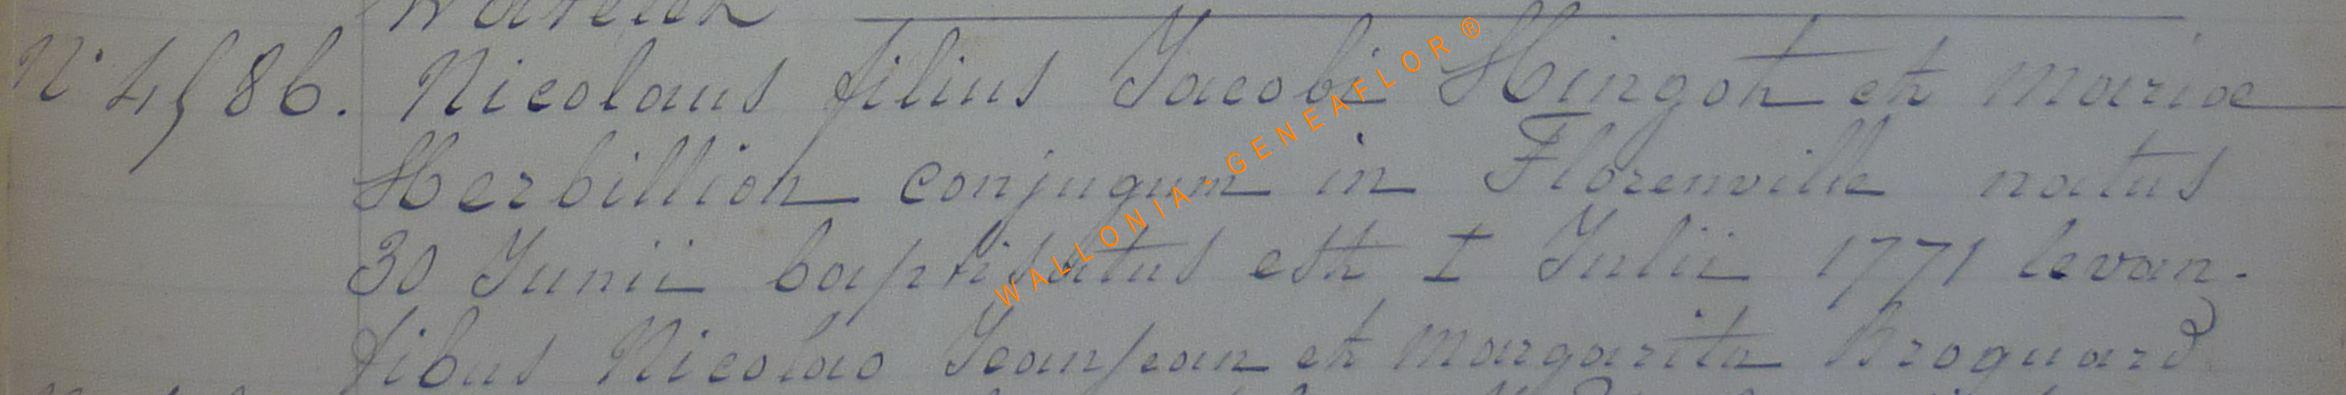 Watelet
N° 4586. Nicolaus filius Jacobi Hingot et mariae
Herbillion conjugum in Florenville natus
30 Junii baptisatus est I Julii 1771 levan-
tibus Nicolao Jeanjean et margarita Broquard
WALLONIA - GENEAFLOR ®